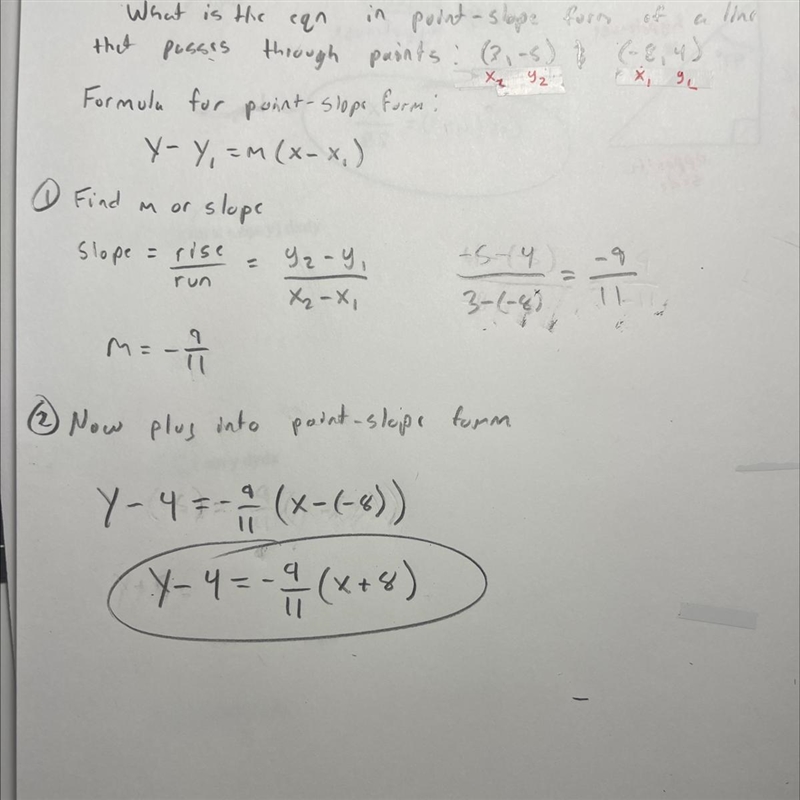 What is the eqn in point-slope form of a line
that passes through points: (3, -5) & (-8, 4)
x₂ y₂ x₁ y₁
Formula for point-slope form:
y - y₁ = m (x - x₁)
① Find m or slope
slope = rise/run = (y₂ - y₁)/(x₂ - x₁) (-5-(4))/(3-(-8)) = -9/11
m = -9/11
② Now plug into point-slope form
y - 4 = -9/11 (x - (-8))
y - 4 = -9/11 (x + 8)